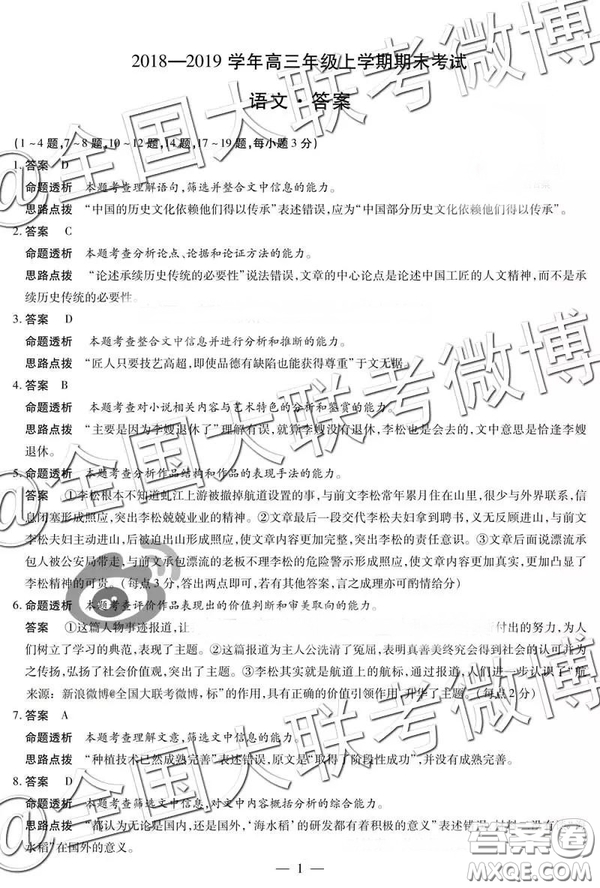 2018—2019 学年高三年级上学期期末考试
语文·答案
(1~4题,7~8题,10~12题,14题,17~19题,每小题3分)
1. 答案 D
命题透析 本题考查理解语句,筛选并整合文中信息的能力。
思路点拨 “中国的历史文化依赖他们得以传承”表述错误,应为“中国部分历史文化依赖他们得以传承”。
2. 答案 C
命题透析 本题考查分析论点、论据和论证方法的能力。
思路点拨 “论述承续历史传统的必要性”说法错误,文章的中心论点是论述中国工匠的人文精神,而不是承
续历史传统的必要性。
3. 答案 D
命题透析 本题考查整合文中信息并进行分析和推断的能力。
思路点拨 “匠人只要技艺高超,即使品德有缺陷也能获得尊重”于文无据。
4. 答案 B
命题透析 本题考查对小说相关内容与艺术特色的分析和鉴赏的能力。
思路点拨 “主要是因为李嫂退休了”理解有误,就算李嫂没有退休,李松也是会去的,文中意思是恰逢李嫂
退休。
5. 命题透析 本题考查分析作品结构和作品的表现手法的能力。
答案 ①李松根本不知道虬江上游被撤掉航道设置的事,与前文李松常年累月住在山里,很少与外界联系,信
息闭塞形成照应,突出李松兢兢业业的精神。②文章最后一段交代李松夫妇拿到聘书,义无反顾进山,与前文
李松夫妇主动进山,后被迫出山形成照应,使文章内容更完整,突出李松的责任意识。③文章最后面说漂流承
包人被公安局带走,与前文承包漂流的老板不理李松的危险警示形成照应,使文章内容更加真实,更加凸显了
李松精神的可贵。(每点3分,答出两点即可,若有其他答案,言之成理亦可酌情给分)
6. 命题透析 本题考查评价作品表现出的价值判断和审美取向的能力。
答案 ①这篇人物事迹报道,让 付出的努力,为人
们树立了学习的典范,表现了主题。②这篇报道为主人公洗清了冤屈,表明真善美终究会得到社会的认可并为
之传扬,弘扬了社会价值观,突出了主题。③李松其实就是航道上的航标,通过报道,人们进一步认识了“航
来源:新浪微博@全国大联考微博,标”的作用,具有正确的价值引领作用,升华了主题。(每点2分)
7. 答案 A
命题透析 本题考查理解文意,筛选文中信息的能力。
思路点拨 “种植技术已然成熟完善”表述错误,原文是“取得了阶段性成功”,并没有成熟完善。
8. 答案 D
命题透析 本题考查筛选文中信息,对文中内容概括分析的能力。
思路点拨 “都认为无论是国内,还是国外,‘海水稻’的研发都有着积极的意义”表述错误
水稻”在国外的意义。
— 1 —
@全国大联考微博
@全国大联考微博
@全国大联考微博
答案圈